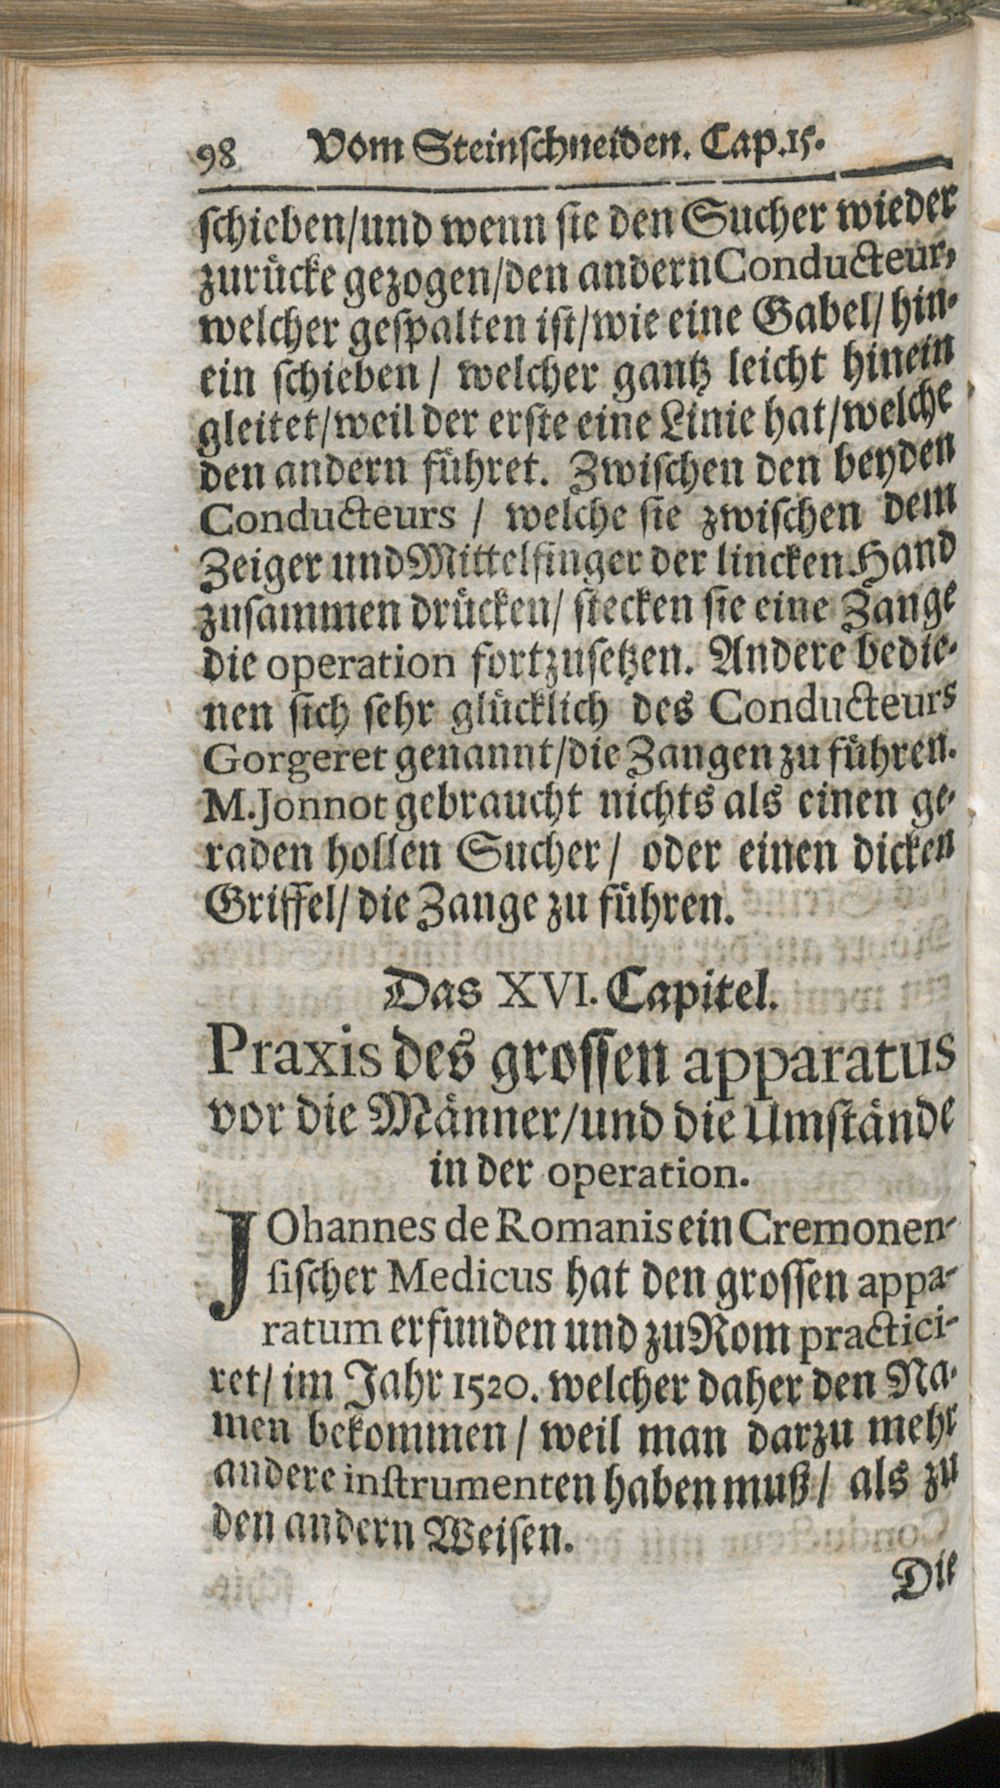 98 Vom Steinschneiden. Cap. 15.
schieben/ und wenn sie den Sucher wieder
zurücke gezogen/ den andern Conducteur,
welcher gespalten ist/ wie eine Gabel/ hin-
ein schieben / welcher gantz leicht hinein
gleitet/ weil der erste eine Linie hat/ welche
den andern führet. Zwischen den beyden
Conducteurs / welche sie zwischen dem
Zeiger und Mittelfinger der lincken Hand
zusammen drücken/ stecken sie eine Zange
die operation fortzusetzen. Andere bedie-
nen sich sehr glücklich des Conducteurs
Gorgeret genannt/ die Zangen zu führen.
M. Jonnot gebraucht nichts als einen ge-
raden hollen Sucher/ oder einen dicken
Griffel/ die Zange zu führen.
Das XVI. Capitel.
Praxis des grossen apparatus
vor die Männer/ und die Umstände
in der operation.
JOhannes de Romanis ein Cremonen-
sischer Medicus hat den grossen appa-
ratum erfunden und zu Rom practici-
ret/ im Jahr 1520. welcher daher den Na-
men bekommen / weil man darzu mehr
andere instrumenten haben muß/ als zu
den andern Weisen.
Die